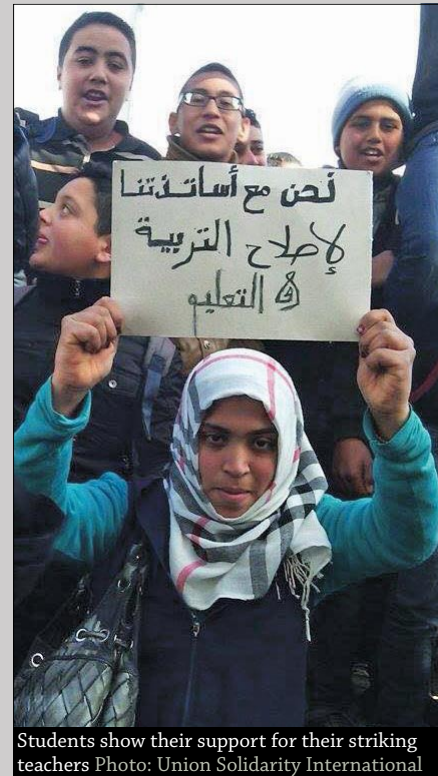 نحن مع أساتذتنا
لإصلاح التربية
و التعليم
Students show their support for their striking
teachers Photo: Union Solidarity International